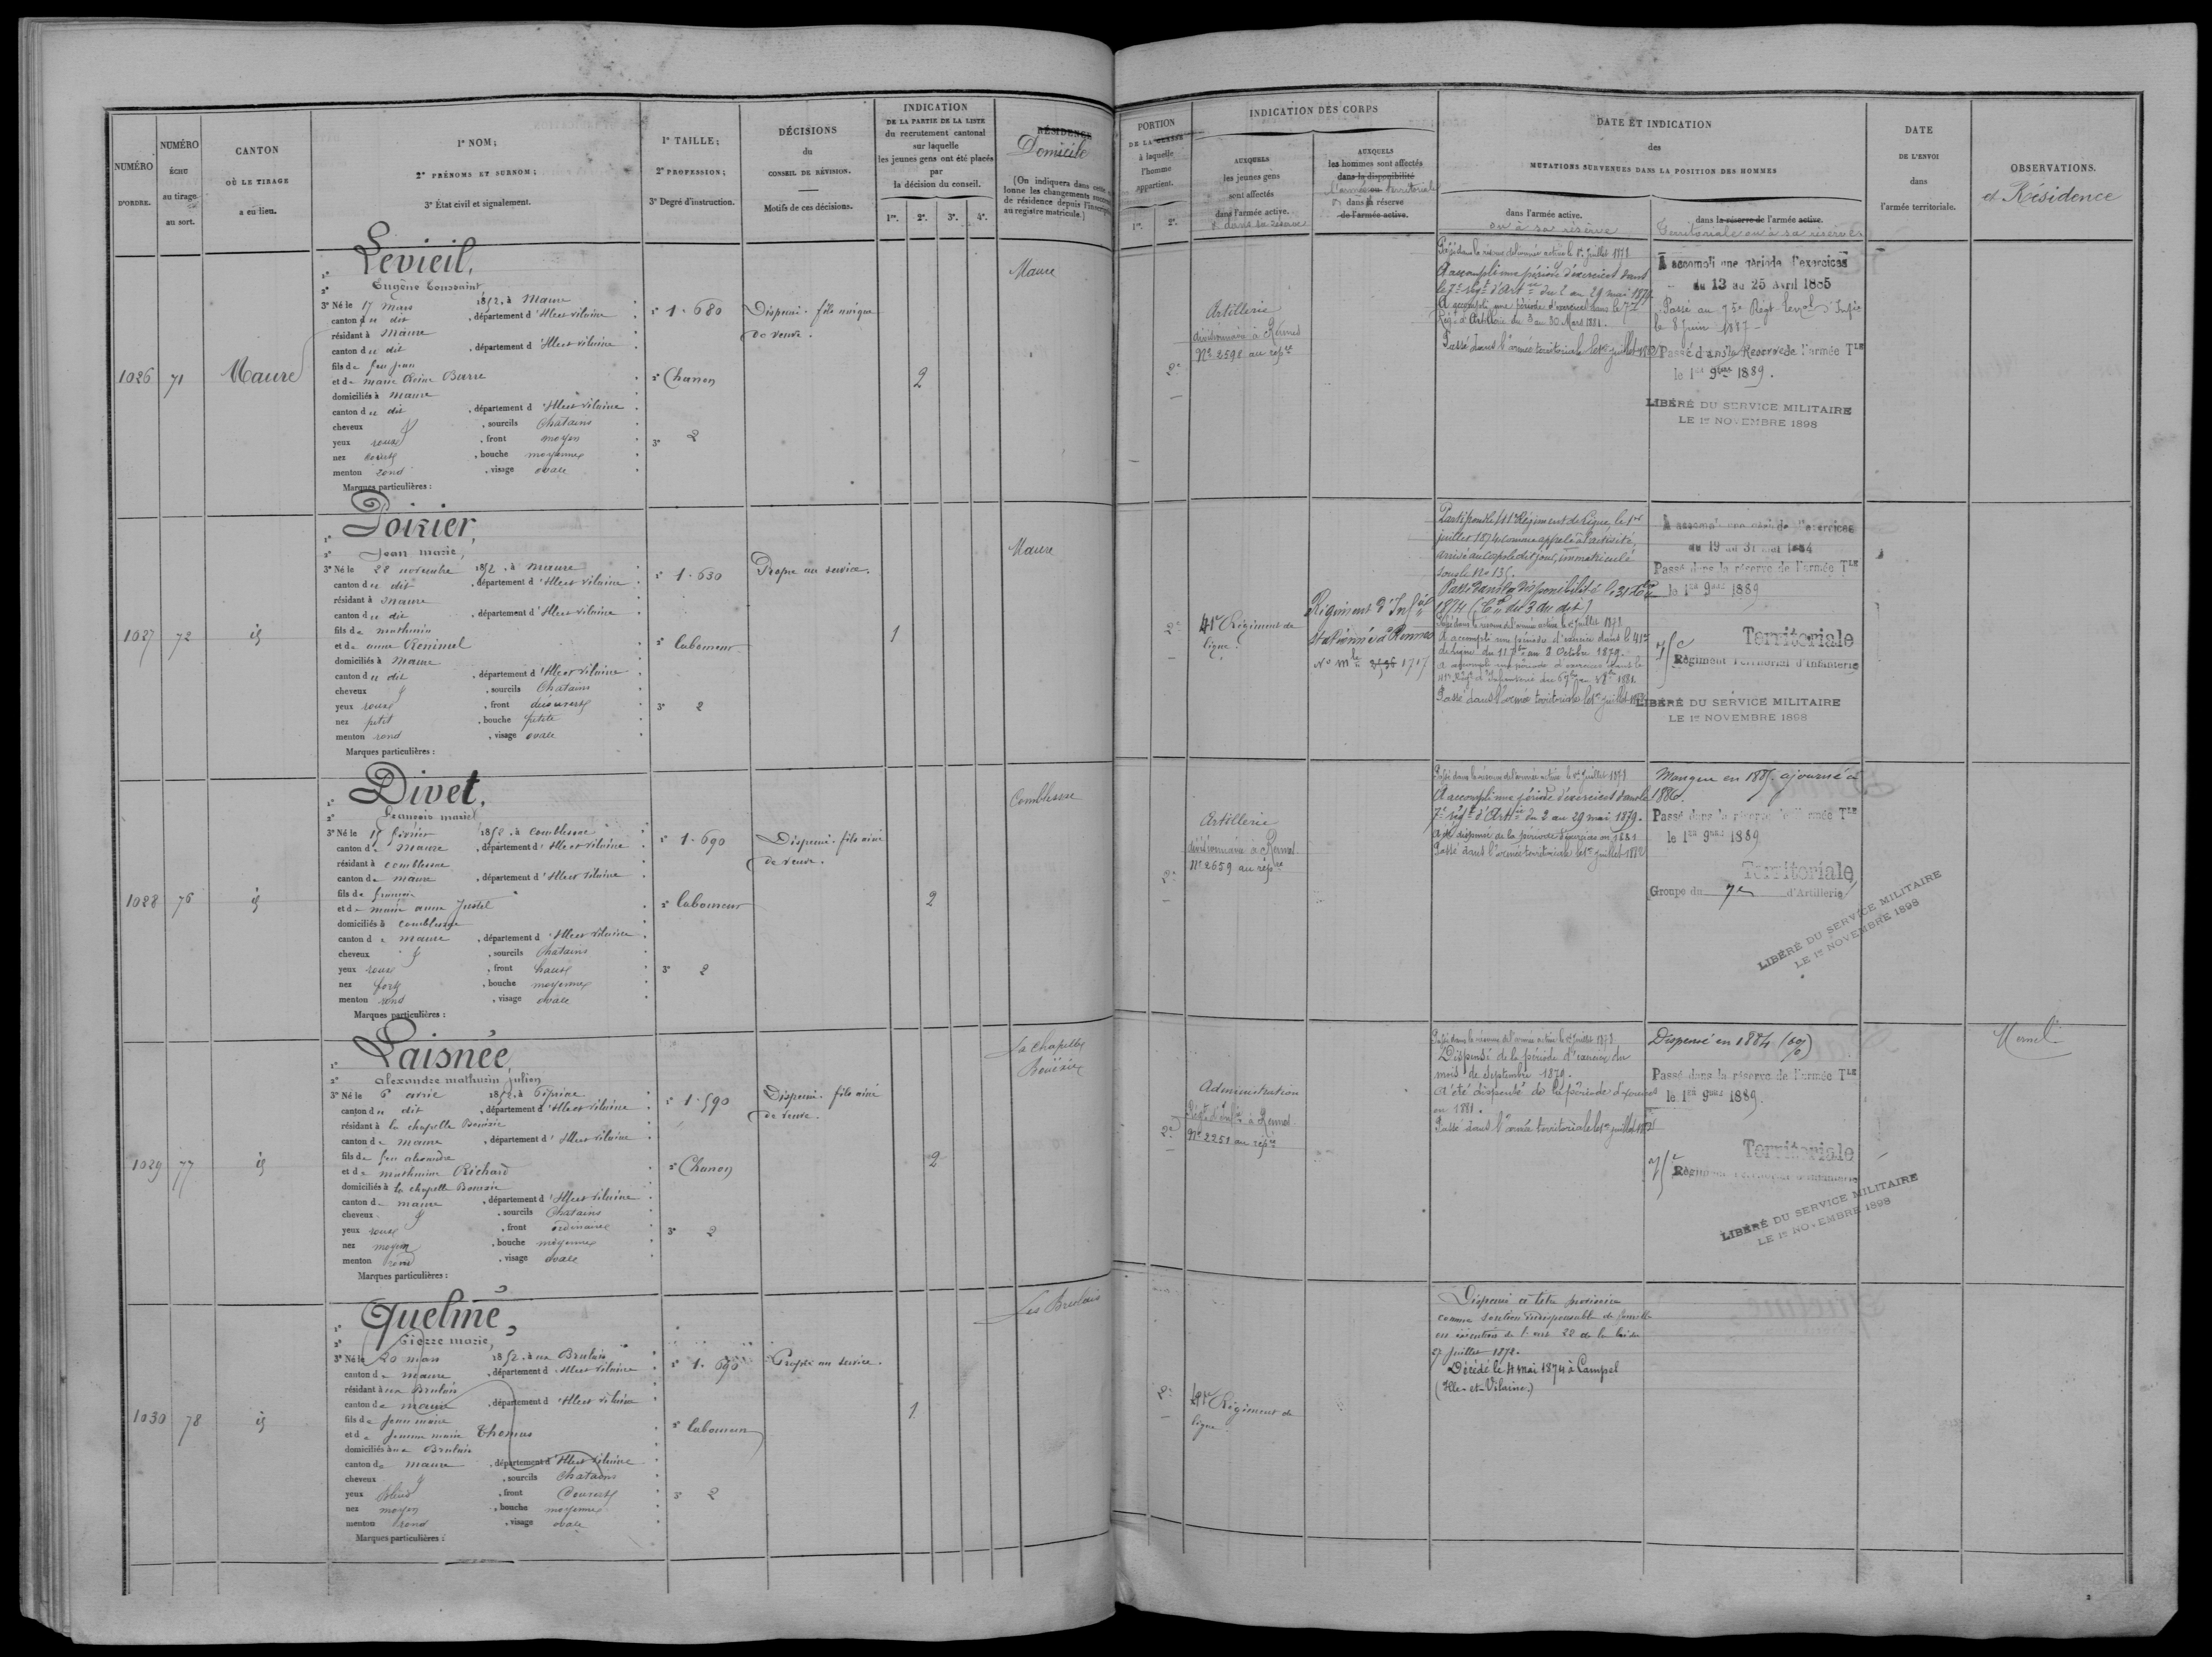 NUMÉRO
D'ORDRE.
NUMÉRO
ÉCHU
au tirage
au sort.
CANTON
OÙ LE TIRAGE
a eu lieu.
1° NOM;
2° PRÉNOMS ET SURNOM;
3° État civil et signalement.
1° TAILLE;
2° PROFESSION;
3° Degré d'instruction.
DÉCISIONS
du
CONSEIL DE RÉVISION.
Motifs de ces décisions.
INDICATION
DE LA PARTIE DE LA LISTE
du recrutement cantonal
sur laquelle
les jeunes gens ont été placés
par
la décision du conseil.
1re. 2e. 3e. 4e.
RÉSIDENCE
Domicile
(On indiquera dans cette
lonne les changements
de résidence depuis
au registre matricule.)
PORTION
DE LA CLASSE
à laquelle
l'homme
appartient.
1re. 2e.
INDICATION DES CORPS
AUXQUELS
les jeunes gens
sont affectés
dans l'armée active.
& dans la réserve
AUXQUELS
les hommes sont affectés
dans la disponibilité
l'armée ou territoriale
dans la réserve
de l'armée active.
DATE ET INDICATION
des
MUTATIONS SURVENUES DANS LA POSITION DES HOMMES
dans l'armée active.
ou à sa réserve
dans la réserve de l'armée active.
Territoriale ou à sa réserve
DATE
DE L'ENVOI
dans
l'armée territoriale.
OBSERVATIONS.
et Résidence
1026 71 Maure
1° Levieil,
2° Eugène Toussaint
3° Né le 17 mars 1852, à Maure
canton du dit, département d'Ille et vilaine
résidant à Maure
canton du dit, département d'Ille et vilaine
fils de feu jean
et de marie Reine Barre
domiciliés à maure
canton du dit, département d'Ille et vilaine
cheveux, sourcils Chatains
yeux roux, front moyen
nez, bouche moyenne
menton rond, visage ovale
Marques particulières :
1° 1.680
2° Chanon
3° 2
Dispensé. fils unique
de veuve.
2
Maure
2e
Artillerie
divisionnaire à Rennes
No 2598 au rép re
Passé dans la réserve de l'armée active le 1er Juillet 1878
A accompli une période d'exercices dans
le 7e rég t d'Art ie du 2 au 29 mai 1879
A accompli une période d'exercices dans le 7e
Rég t d'Artillerie du 3 au 30 Mars 1881.
Passé dans l'armée territoriale le 1er juillet 1882
A accompli une période d'exercices
du 13 au 25 Avril 1885
Passé au 75e Régt terr al d'Infie
le 8 Juin 1887
Passé dans la Réserve de l'armée TLE
le 1er 9bre 1889.
LIBÉRÉ DU SERVICE MILITAIRE
LE 1er NOVEMBRE 1898
1027 72 id
1° Poirier,
2° Jean marie,
3° Né le 22 novembre 1852, à maure
canton du dit, département d'Ille et vilaine
résidant à Maure
canton du dit, département d'Ille et vilaine
fils de mathurin
et de anne
domiciliés à maure
canton du dit, département d'Ille et vilaine
cheveux, sourcils Chatains
yeux roux, front découvert
nez petit, bouche petite
menton rond, visage ovale
Marques particulières :
1° 1.630
2° laboureur
3° 2
Propre au service.
1
Maure
2e
41e Régiment de
ligne.
Régiment d'Inf ie
Stationné à Rennes
No mle 1717
Parti pour le 41e Régiment de Ligne, le 1er
juillet 1874 comme appelé à l'activité,
arrivé au corps le dit jour, immatriculé
sous le No 135.
Passé dans la disponibilité le 31 Xbre
1874 (C re du 3 du dit)
Passé dans la réserve de l'armée active le 1er Juillet 1878
A accompli une période d'exercice dans le 41e
de ligne du 11 7bre au 8 Octobre 1879.
A accompli une période d'exercices dans le
41e Régt d'Infanterie
Passé dans l'armée territoriale le 1er juillet 1882
A accompli une période d'exercices
du 19 au 31 mai 1884
Passé dans la réserve de l'armée TLE
le 1er 9bre 1889
Territoriale
75e Régiment Territorial d'Infanterie
LIBÉRÉ DU SERVICE MILITAIRE
LE 1er NOVEMBRE 1898
1028 76 id
1° Divet,
2° François marie
3° Né le 15 février 1852, à Comblessac
canton de Maure, département d'Ille et vilaine
résidant à comblessac
canton de maure, département d'Ille et vilaine
fils de françois
et de marie anne
domiciliés à comblessac
canton de maure, département d'Ille et vilaine
cheveux, sourcils Chatains
yeux roux, front haut
nez fort, bouche moyenne
menton rond, visage ovale
Marques particulières :
1° 1.690
2° laboureur
3° 2
Dispensé. fils ainé
de veuve.
2
Comblessac
2e
Artillerie
divisionnaire à Rennes
No 2659 au rép re
Passé dans la réserve de l'armée active le 1er Juillet 1878
A accompli une période d'exercices dans le
7e rég t d'Art ie du 2 au 29 mai 1879.
A été dispensé de la période d'exercices en 1881
Passé dans l'armée territoriale le 1er juillet 1882
Manque en 1885, ajourné à
1886.
Passé dans la réserve de l'armée TLE
le 1er 9bre 1889
Territoriale
Groupe du 7e d'Artillerie
LIBÉRÉ DU SERVICE MILITAIRE
LE 1er NOVEMBRE 1898
1029 77 id
1° Laisnée,
2° alexandre mathurin julien
3° Né le 6 avril 1852, à Pipriac
canton du dit, département d'Ille et vilaine
résidant à la chapelle Bouëxic
canton de maure, département d'Ille et vilaine
fils de feu alexandre
et de mathurine Richard
domiciliés à la chapelle Bouëxic
canton de maure, département d'Ille et vilaine
cheveux, sourcils Chatains
yeux roux, front ordinaire
nez moyen, bouche moyenne
menton rond, visage ovale
Marques particulières :
1° 1.590
2° Chanon
3° 2
Dispensé. fils ainé
de veuve.
2
La chapelle
Bouëxic
2e
Administration
Régt d'Inf ie à Rennes
No 2251 au rép re
Passé dans la réserve de l'armée active le 1er Juillet 1878
Dispensé de la période d'exercice du
mois de Septembre 1879.
A été dispensé de la période d'exercices
en 1881.
Passé dans l'armée territoriale le 1er juillet 1882
Dispensé en 1884
Passé dans la réserve de l'armée TLE
le 1er 9bre 1889.
Territoriale
75e Régiment Territorial d'Infanterie
LIBÉRÉ DU SERVICE MILITAIRE
LE 1er NOVEMBRE 1898
Mernel
1030 78 id
1° Quelmé,
2° Pierre marie,
3° Né le 20 mars 1852, à ux Brulais
canton de maure, département d'Ille et vilaine
résidant à ux Brulais
canton de maure, département d'Ille et vilaine
fils de Jean marie
et de Jeanne marie Thomas
domiciliés à ux Brulais
canton de maure, département d'Ille et vilaine
cheveux, sourcils Chatains
yeux bleus, front Couvert
nez moyen, bouche moyenne
menton rond, visage ovale
Marques particulières :
1° 1.690
2° laboureur
3° 2
Propre au service.
1
Les Brulais
2e
41e Régiment de
ligne
Dispensé à titre provisoire
comme soutien indispensable de famille
en exécution de l'art 22 de la loi du
27 juillet 1872.
Décédé le 4 mai 1874 à Campel
(Ille-et-Vilaine.)